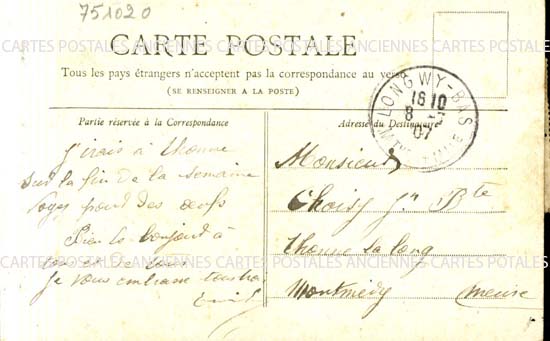 751020
CARTES POSTALES ANCIENNES CARTES POSTALES ANCIENNES CARTES POSTALES
CARTE POSTALE
Tous les pays étrangers n'acceptent pas la correspondance au verso
(SE RENSEIGNER A LA POSTE)
LONGWY-BAS
16 10
8
07
Partie réservée à la Correspondance
J'irais à Thonne
sur la fin de la semaine
pour des œufs
Bien le bonjour à
Je vous embrasse tous
Adresse du Destinataire
Monsieur
Choisy Jn Bte
Thonne la long
Montmédy Meuse
CARTES POSTALES ANCIENNES CARTES POSTALES ANCIENNES CARTES POSTALES